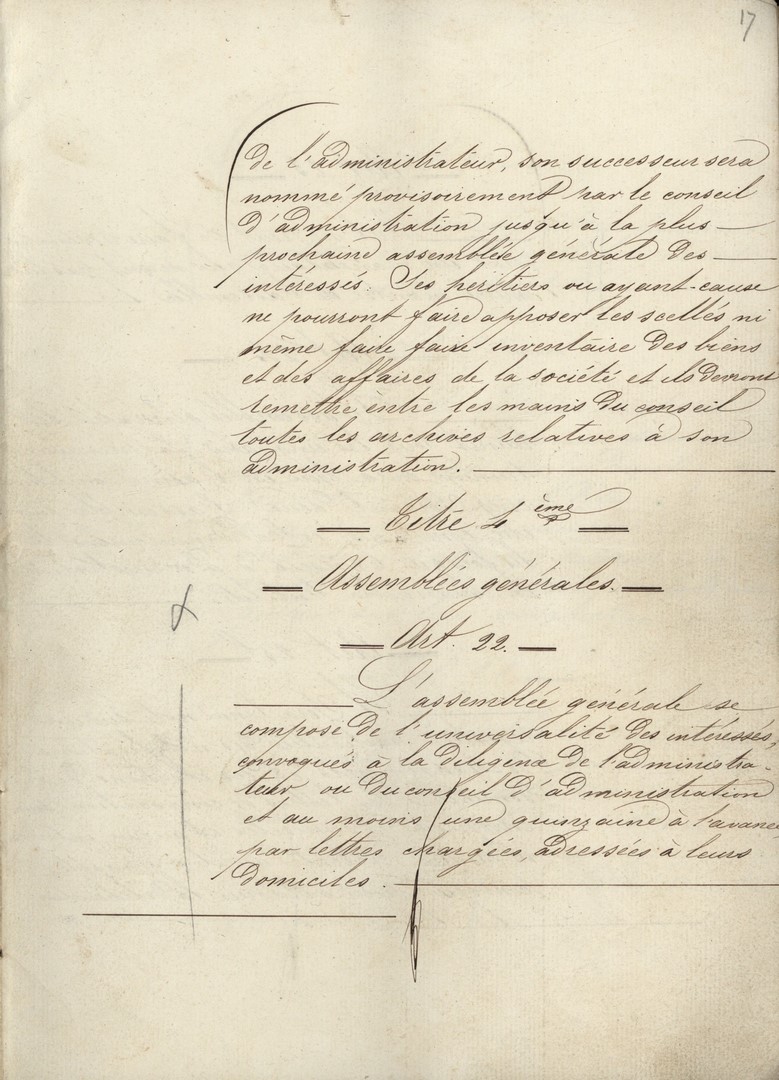 17
de l'administrateur, son successeur sera
nommé provisoirement par le conseil
d'administration jusqu'à la plus
prochaine assemblée générale des
intéressés. Ses héritiers ou ayant-cause
ne pourront faire apposer les scellés ni
même faire faire inventaire des biens
et des affaires de la société et ils devront
remettre entre les mains du conseil
toutes les archives relatives à son
administration.
Titre 4ème
Assemblées générales.
Art. 22.
L'assemblée générale se
compose de l'universalité des intéressés,
convoqués à la diligence de l'administra-
teur ou du conseil d'administration
et au moins une quinzaine à l'avance
par lettres chargées, adressées à leurs
domiciles.